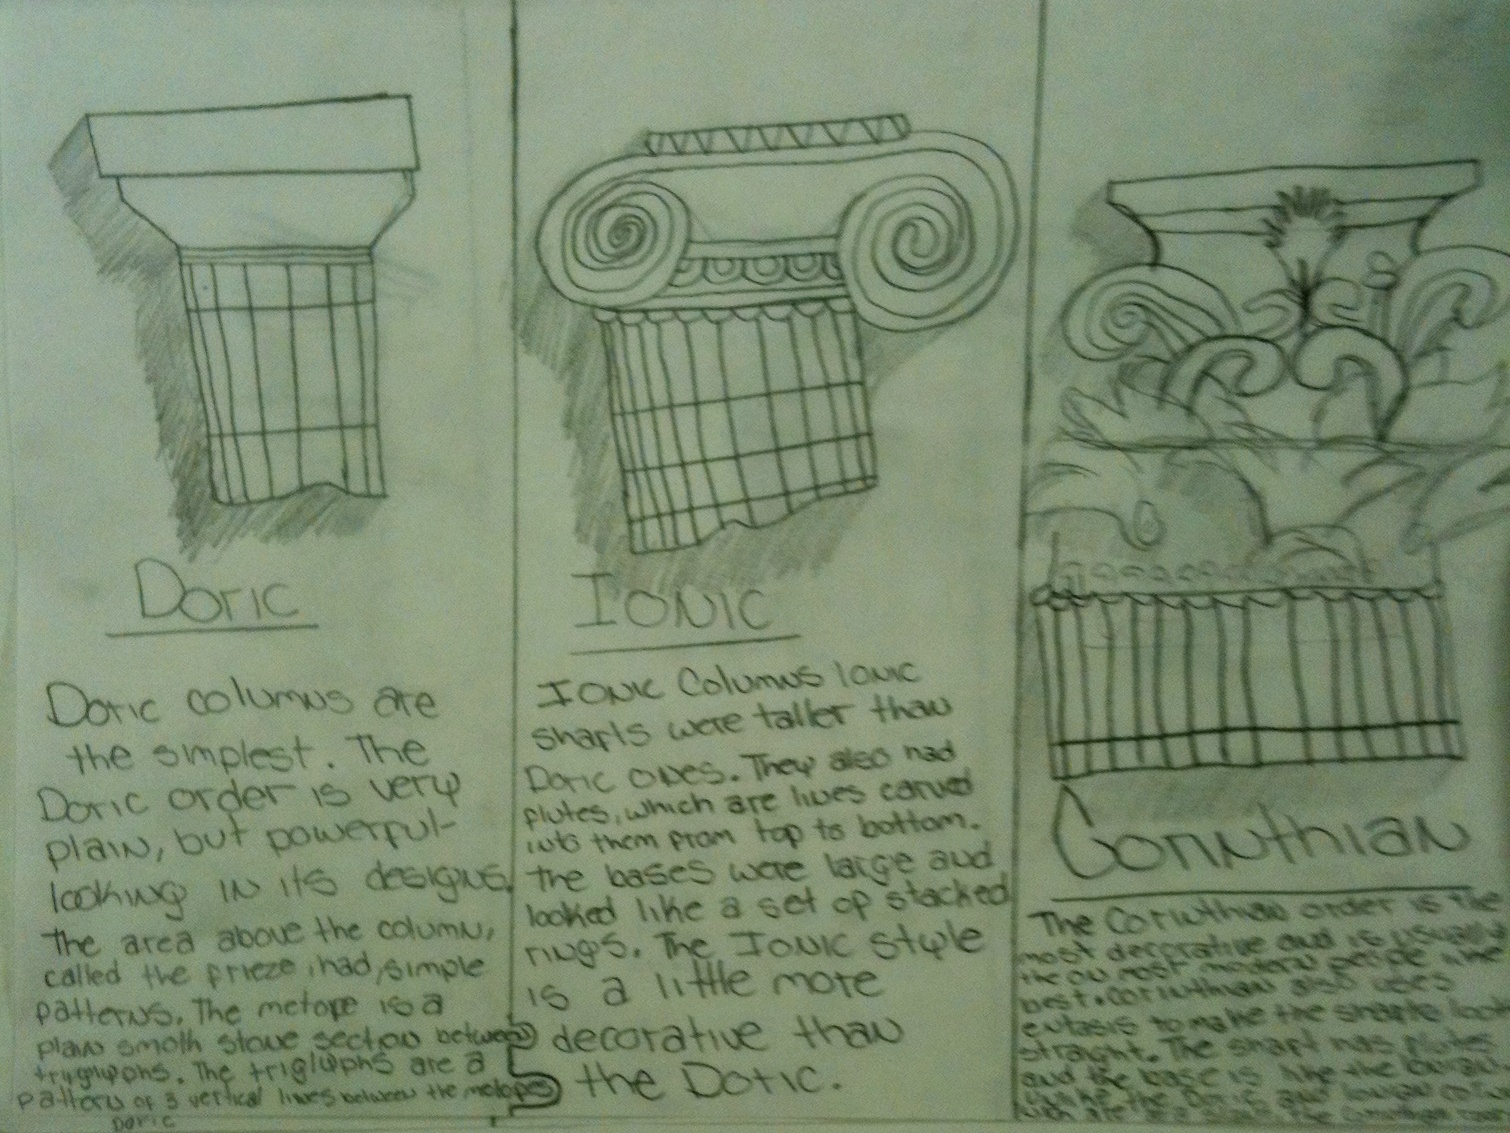 Doric
Doric columns are
the simplest. The
Doric order is very
plain, but powerful-
looking in its designs.
The area above the column,
called the frieze, had simple
patterns. The metope is a
plain smoth stone section between
tryglyphs. The triglyphs are a
pattern of 3 vertical lines between the metopes
Doric
Ionic
Ionic Columns Ionic
shafts were taller than
Doric ones. They also had
flutes, which are lines carved
into them from top to bottom.
the bases were large and
looked like a set of stacked
rings. The Ionic style
is a little more
decorative than
the Doric.
Corinthian
The Corinthian order is the
most decorative and is usually
the most modern people
best. Corinthian also uses
entasis to make the shafts look
straight. The shaft has flutes
and the base is like the
the Doric and